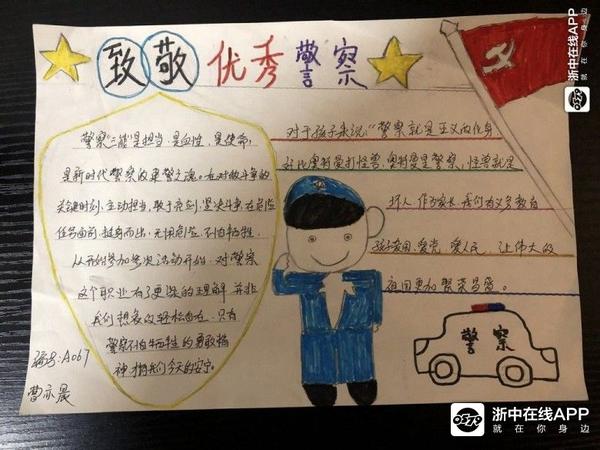 致敬优秀警察
警察"三能"是担当,是血性,是使命,
是新时代警察的
关键时刻,主动担当,敢于亮剑,坚决斗争,在危险
任务面前,挺身而出,无惧危险,不怕牺牲,
从开始参加多次活动开始,对警察
这个职业有了更深的理解,并非
我们想象的轻松自在,只有
警察不怕牺牲的勇敢精
神,才有我们今天的安宁。
编号:A067
曹亦晨
对于孩子来说:"警察就是正义的化身
好比奥特曼打怪兽,奥特曼是警察,怪兽就是
坏人,作为家长,我们有义务教育
孩子爱国、爱党、爱人民,让伟大的
祖国更加繁荣昌盛。
警察
浙中在线APP
就在你身边
浙中在线APP
就在你身边